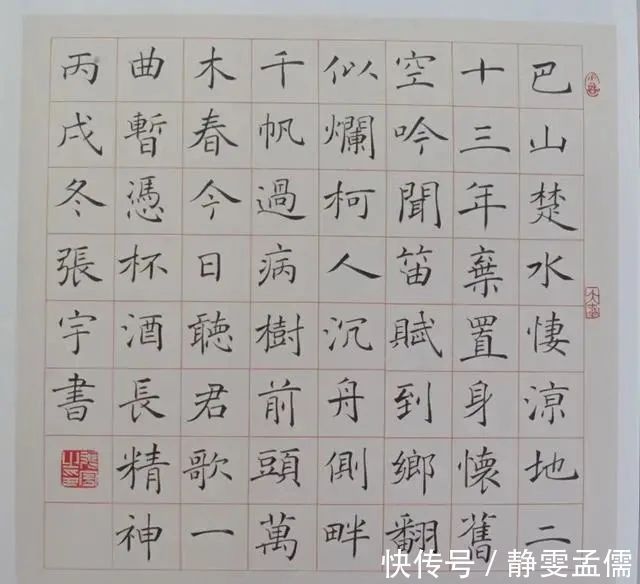 巴山楚水悽涼地二
十三年棄置身懷舊
空吟聞笛賦到鄉翻
似爛柯人沉舟側畔
千帆過病樹前頭萬
木春今日聽君歌一
曲暫憑杯酒長精神
丙戌冬張宇書
快传号/静雯孟儒